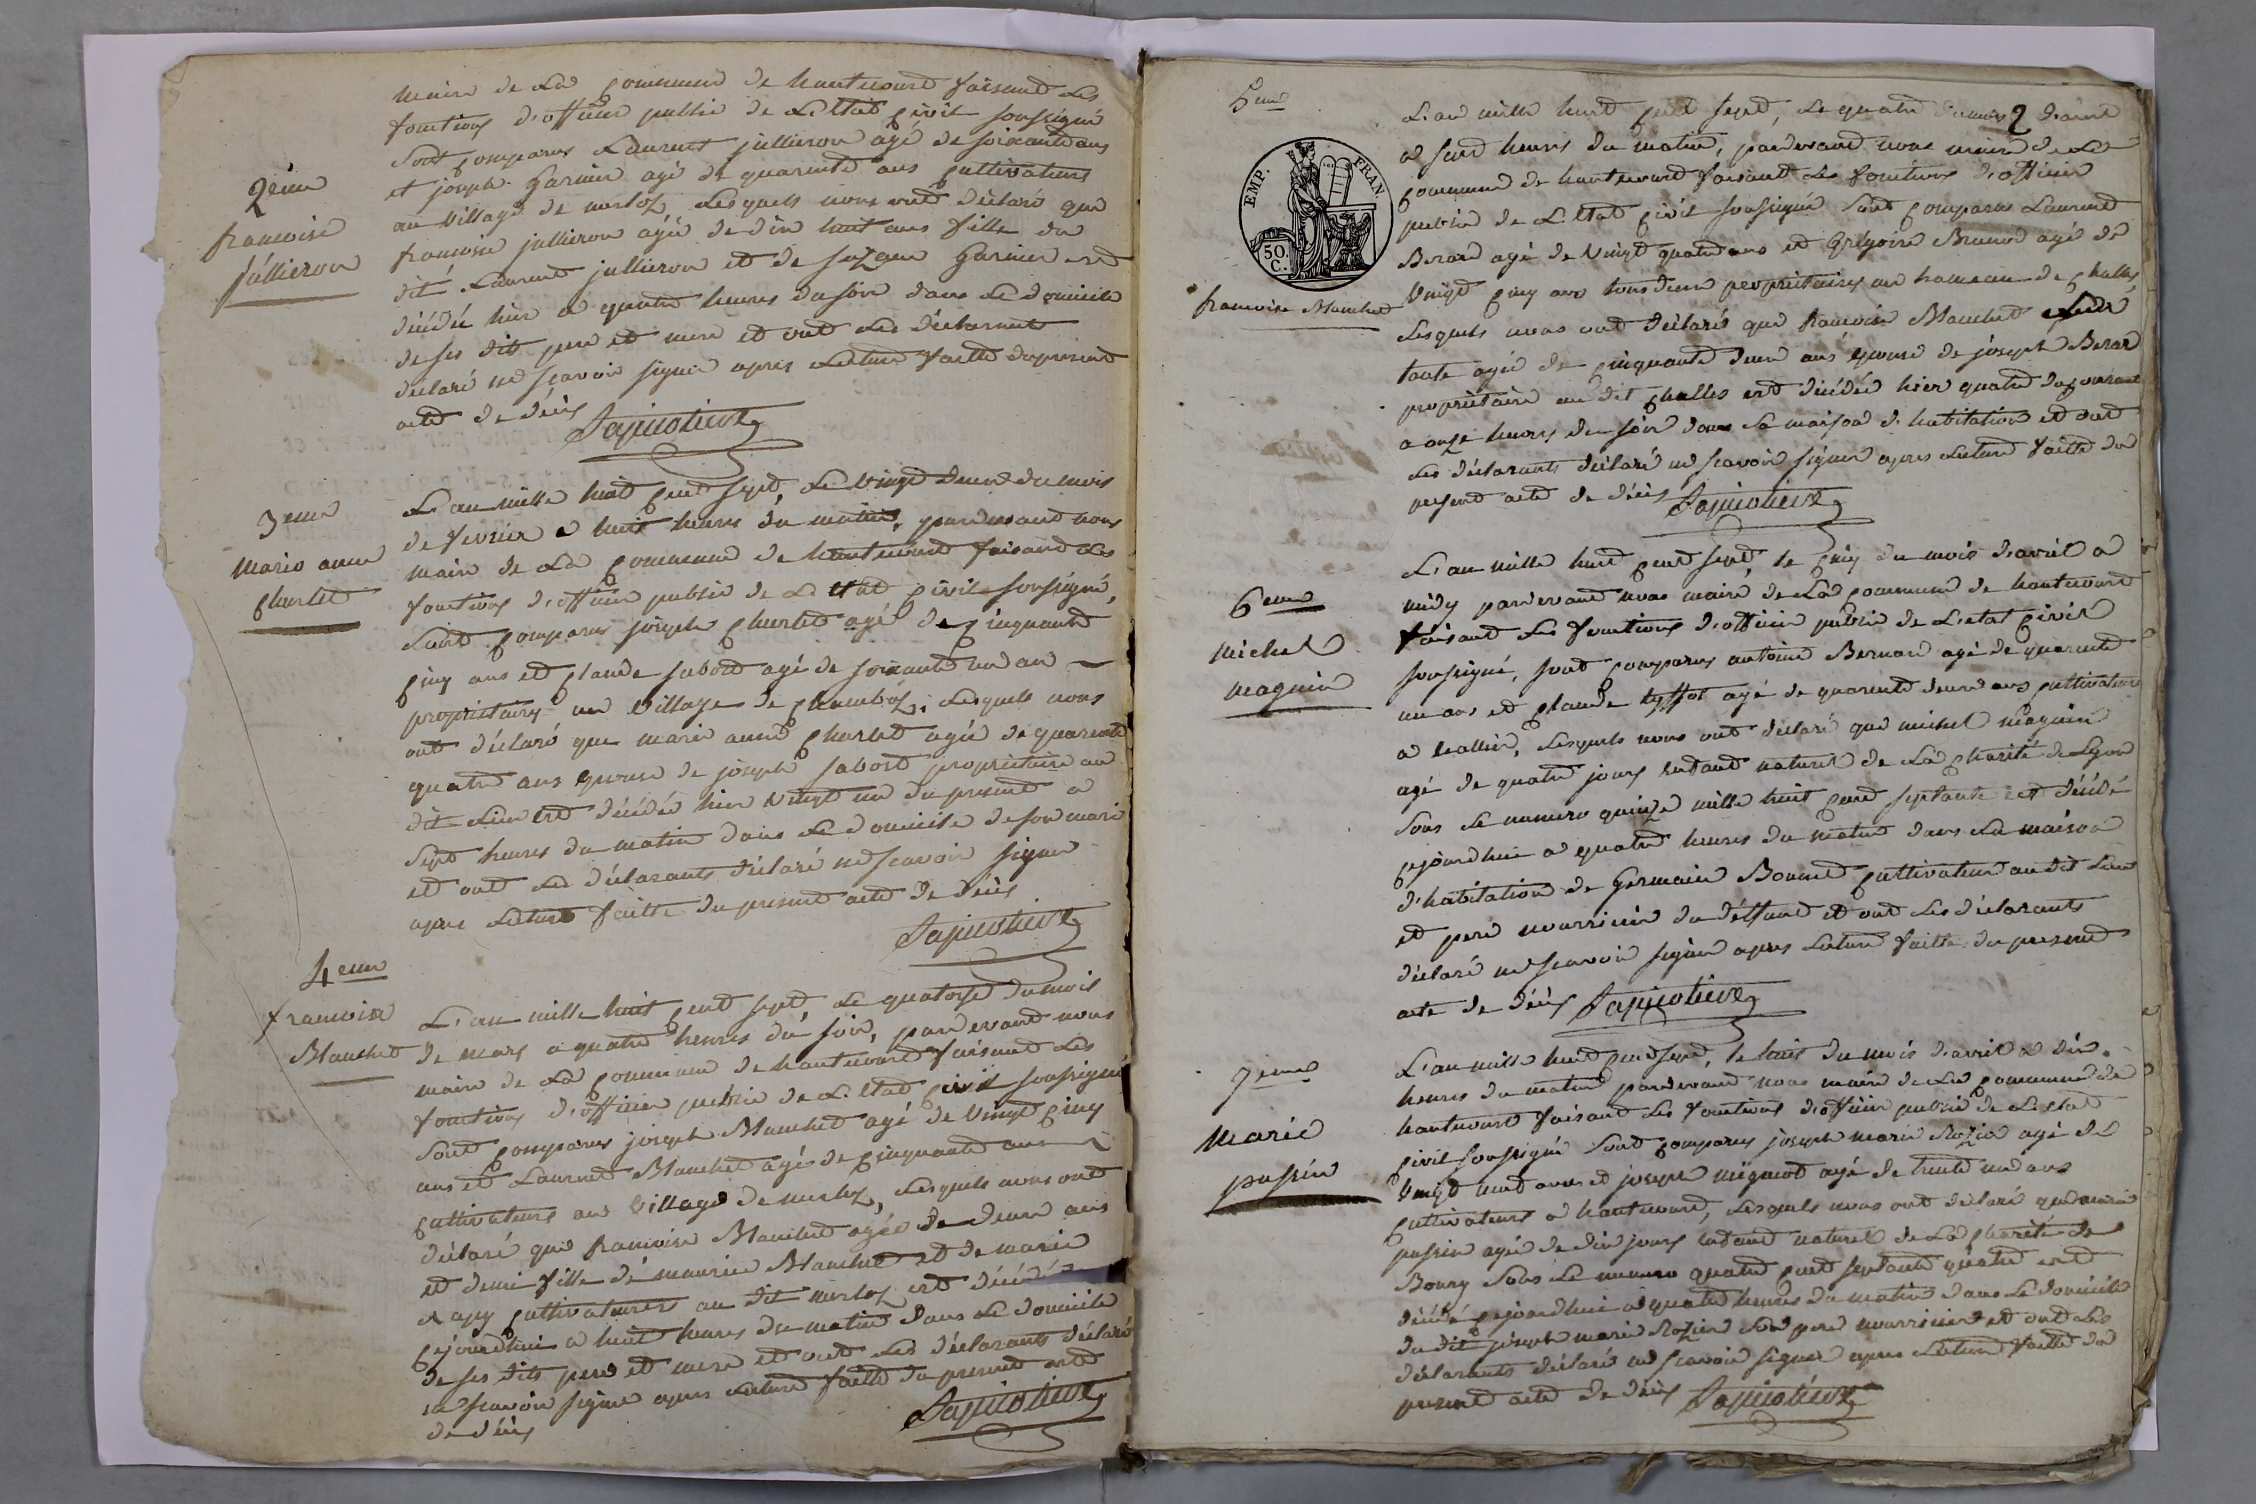 maire de La Commune de hautecourt faisant Les
fonctions d'officier public de L'Etat Civil soussigné
sont Comparus Laurent jullieron agé de soixante ans
et joseph garnier agé de quarente ans Cultivateurs
au village de merloz Lesquels nous ont déclaré que
francoise jullieron agée de dix huit ans fille du
dit Laurent jullieron et de suzane garnier est
décédée hier a quatre heures du soir dans Le domicile
de ses dits pere et mere et ont Les déclarants
déclaré ne scavoir signer apres Lecture faitte du present
acte de décès
2eme
francoise
jullieron
L'an mille huit Cent sept, Le vingt deux du mois
de fevrier a huit heures du matin, pardevant nous
maire de La Commune de hautecourt faisant Les
fonctions d'officier public de L'Etat Civil soussigné,
sont Comparus joseph Charlet agé de Cinquante
Cinq ans et Claude sabord agé de soixante un an
propriétaires au village de Chambod; Lesquels nous
ont déclaré que marie anne Charlet agée de quarente
quatre ans epouse de joseph sabord propriétaire au
dit Lieu est décédée hier vingt un du present a
sept heures du matin dans Le domicile de son mari
et ont Les déclarants déclaré ne scavoir signer
apres Lecture faitte du present acte de décès
3eme
marie anne
Charlet
L'an mille huit Cent sept, Le quatorze du mois
de mars a quatre heures du soir, pardevant nous
maire de La Commune de hautecourt faisant Les
fonctions d'officier public de L'Etat Civil soussigné
sont Comparus joseph Blanchet agé de vingt Cinq
ans et Laurent Blanchet agé de Cinquante ans
Cultivateurs au village de merloz, Lesquels nous ont
déclaré que francoise Blanchet agée de deux ans
et demi fille de maurice Blanchet et de marie
Cultivateurs au dit merloz est décédée
Cejourdhui a huit heures du matin dans Le domicile
de ses dits pere et mere et ont Les déclarants déclaré
ne scavoir signer apres Lecture faitte du present acte
de décès
4eme
francoise
Blanchet
2
5eme
EMP. FRAN.
50 C.
francoise Blanchet
L'an mille huit Cent sept, Le quatre d'avril
a sept heures du matin, pardevant nous maire de La
Commune de hautecourt faisant Les fonctions d'officier
public de L'Etat Civil soussigné sont Comparus Laurent
Berard agé de vingt quatre ans et Grégoire Brunet agé de
vingt Cinq ans tous deux propriétaires au hameau de Challes
Lesquels nous ont déclaré que francoise Blanchet
agée de Cinquante deux ans epouse de joseph Berard
propriétaire au dit Challes est décédée hier quatre du Courant
a onze heures du soir dans sa maison d'habitation et ont
Les déclarants déclaré ne scavoir signer apres Lecture faitte du
present acte de décès
6eme
michel
maguin
L'an mille huit Cent sept, le Cinq du mois d'avril a
midy pardevant nous maire de La Commune de hautecourt
faisant Les fonctions d'officier public de L'etat Civil
soussigné, sont Comparus antoine Bernard agé de quarente
un ans et Claude tissot agé de quarente deux ans Cultivateurs
a Lesquels nous ont déclaré que michel maguin
agé de quatre jours Enfant naturel de La Charité de Lyon
sous Le numero quinze mille huit Cent septante est décédé
Cejourdhui a quatre heures du matin dans La maison
d'habitation de Germain Bonnet Cultivateur au dit Lieu
et pere nourricier du déffunt et ont Les déclarants
déclaré ne scavoir signer apres Lecture faitte du present
acte de décès
7eme
marie
passin
L'an mille huit Cent sept, le huit du mois d'avril a dix
heures du matin pardevant nous maire de La Commune de
hautecourt faisant Les fonctions d'officier public de L'etat
Civil soussigné sont Comparus joseph marie Rozier agé de
vingt neuf ans et joseph migniot agé de trente un ans
Cultivateurs a hautecourt, Lesquels nous ont déclaré que marie
passin agée de dix jours Enfant naturel de La Charité de
Bourg sous Le numero quatre Cent septante quatre est
décédé Cejourdhui a quatre heures du matin dans Le domicile
du dit joseph marie Rozier son pere nourricier et ont Les
déclarants déclaré ne scavoir signer apres Lecture faitte du
present acte de décès